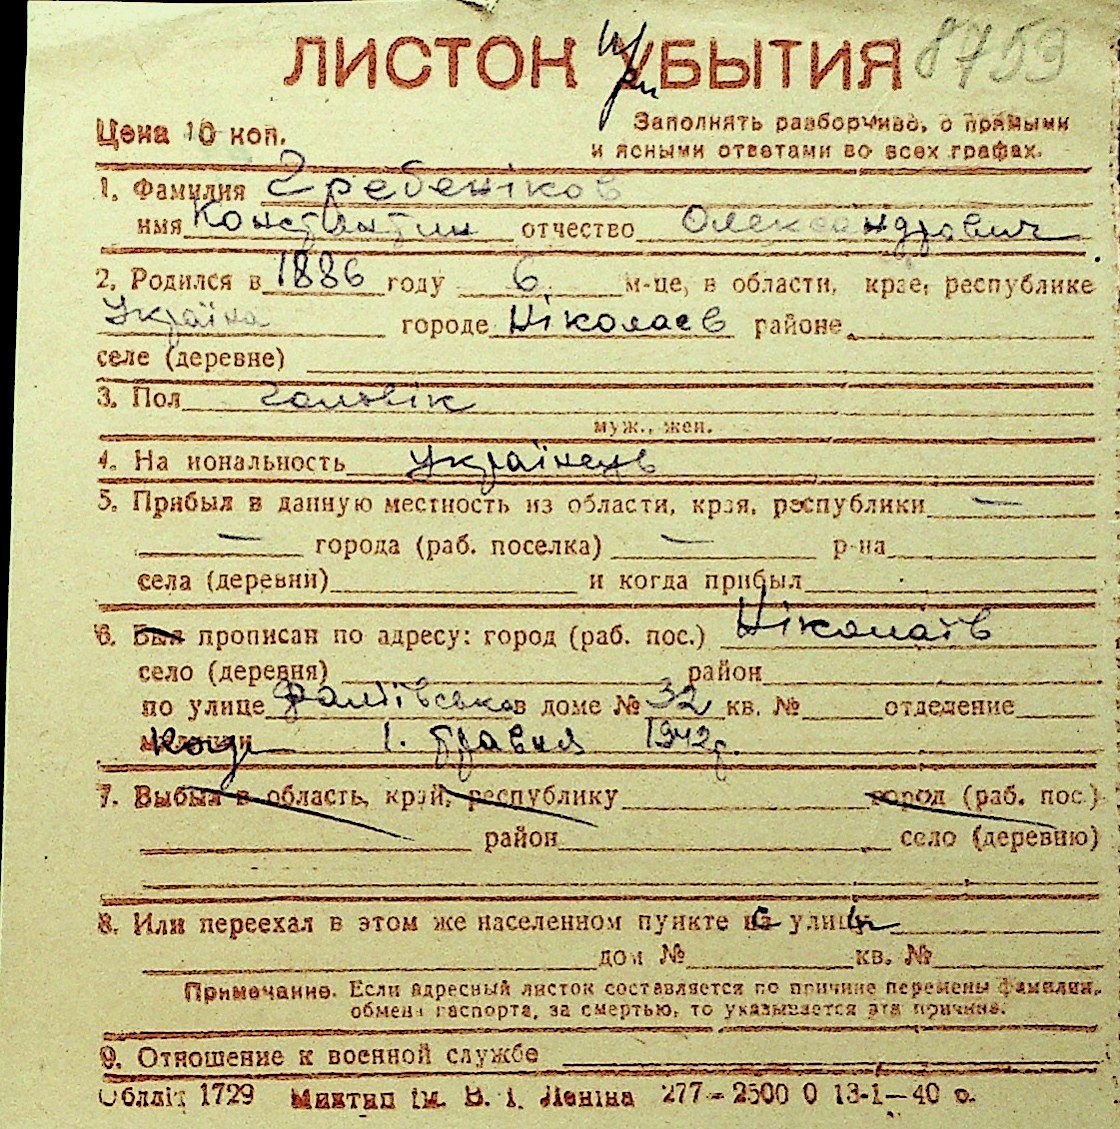 ЛИСТОК при УБЫТИЯ 8753
Цена 10 коп. Заполнять разборчиво, с прямыми
и ясными ответами во всех графах.
1. Фамилия Гребеніков
имя Константин отчество Олександрович
2. Родился в 1886 году 6 м-це, в области, крае, республике
Україна городе Ніколаев районе
селе (деревне)
3. Пол Чоловік
муж., жен.
4. На иональность Українець
5. Прибыл в данную местность из области, края, республики —
— города (раб. поселка) — р-на
села (деревни) и когда прибыл
6. Был прописан по адресу: город (раб. пос.) Ніколаїв
село (деревня) район
по улице в доме № 32 кв. № отделение
милиции Коли 1. травня 1942 р.
7. Выбыл в область, край, республику город (раб. пос.)
район село (деревню)
8. Или переехал в этом же населенном пункте с улицы
дом № кв. №
Примечание. Если адресный листок составляется по причине перемены фамилии,
обмена паспорта, за смертью, то указывается эта причина.
9. Отношение к военной службе
Обллiт 1729 Миктип ім. В. І. Леніна 277–2500 0 13-1–40 р.